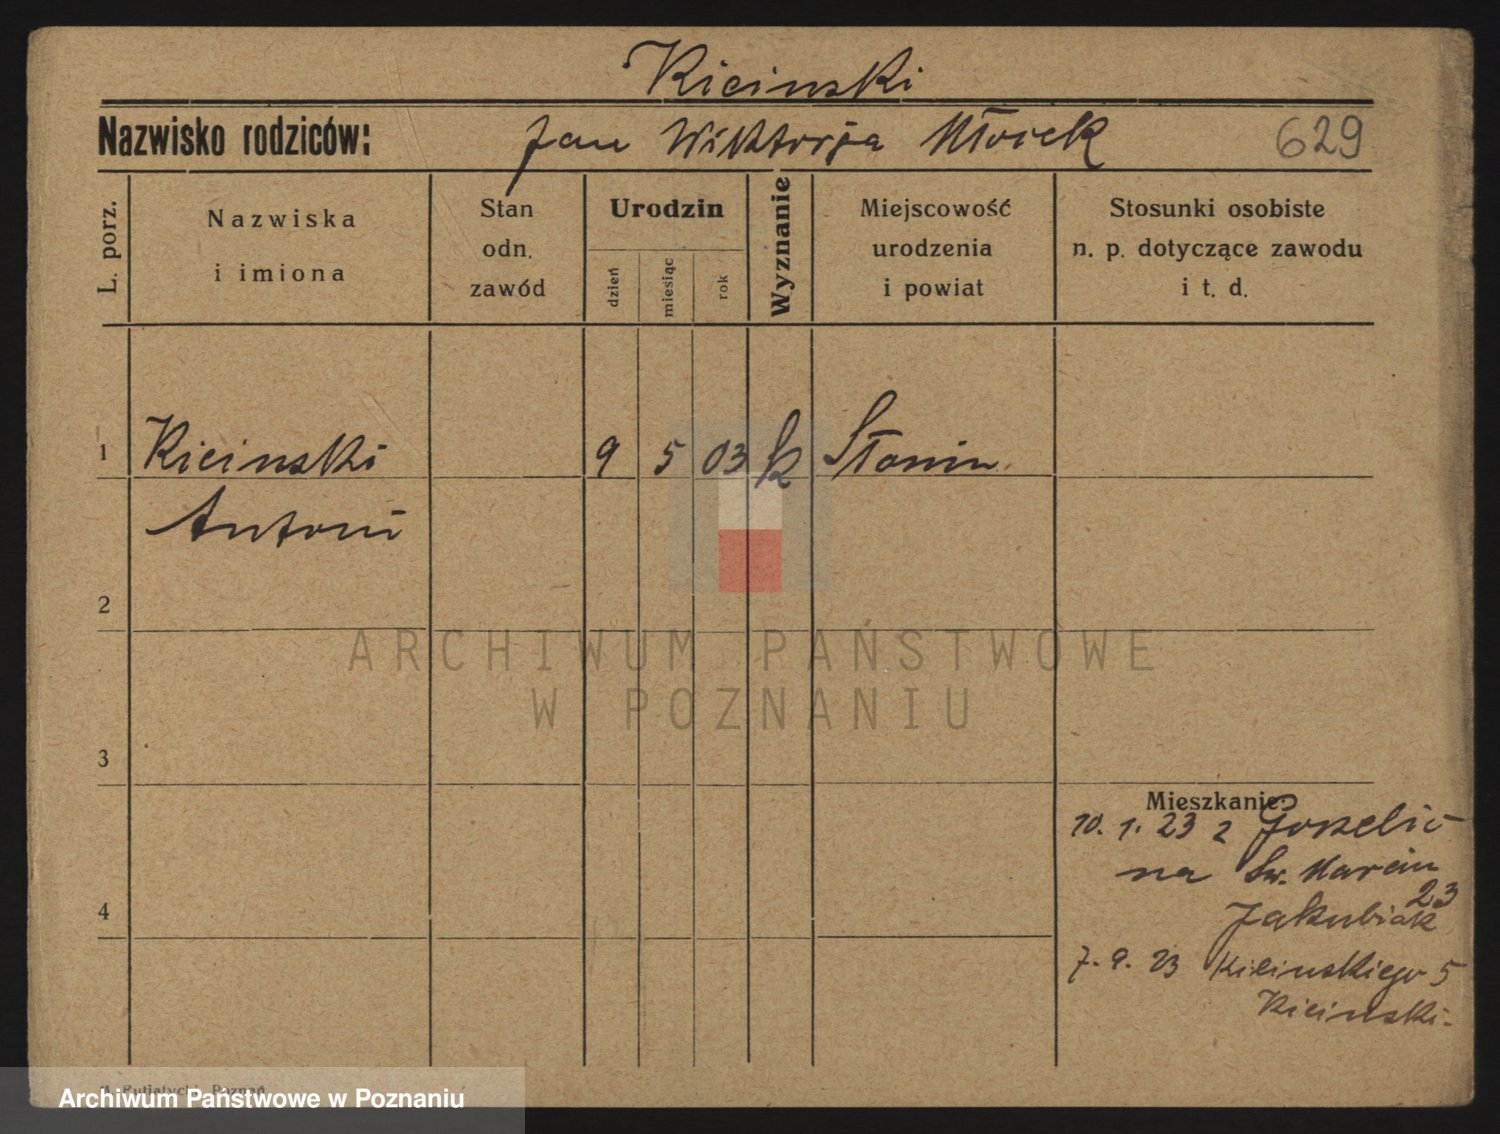 Kicinski
Nazwisko rodziców: Jan Wiktorja Młocek 629
L. porz.
Nazwiska
i imiona
Stan
odn.
zawód
Urodzin
dzień
miesiąc
rok
Wyznanie
Miejscowość
urodzenia
i powiat
Stosunki osobiste
n. p. dotyczące zawodu
i t. d.
1 Kicinski 9 5 03 k Słonin
Antoni
2
ARCHIWUM PAŃSTWOWE
W POZNANIU
3
Mieszkanie:
10. 1. 23 z
na Św. Marcin
23
4
Jakubiak
7. 9. 23 Kilinskiego 5
Kicinski.
Poznań
Archiwum Państwowe w Poznaniu